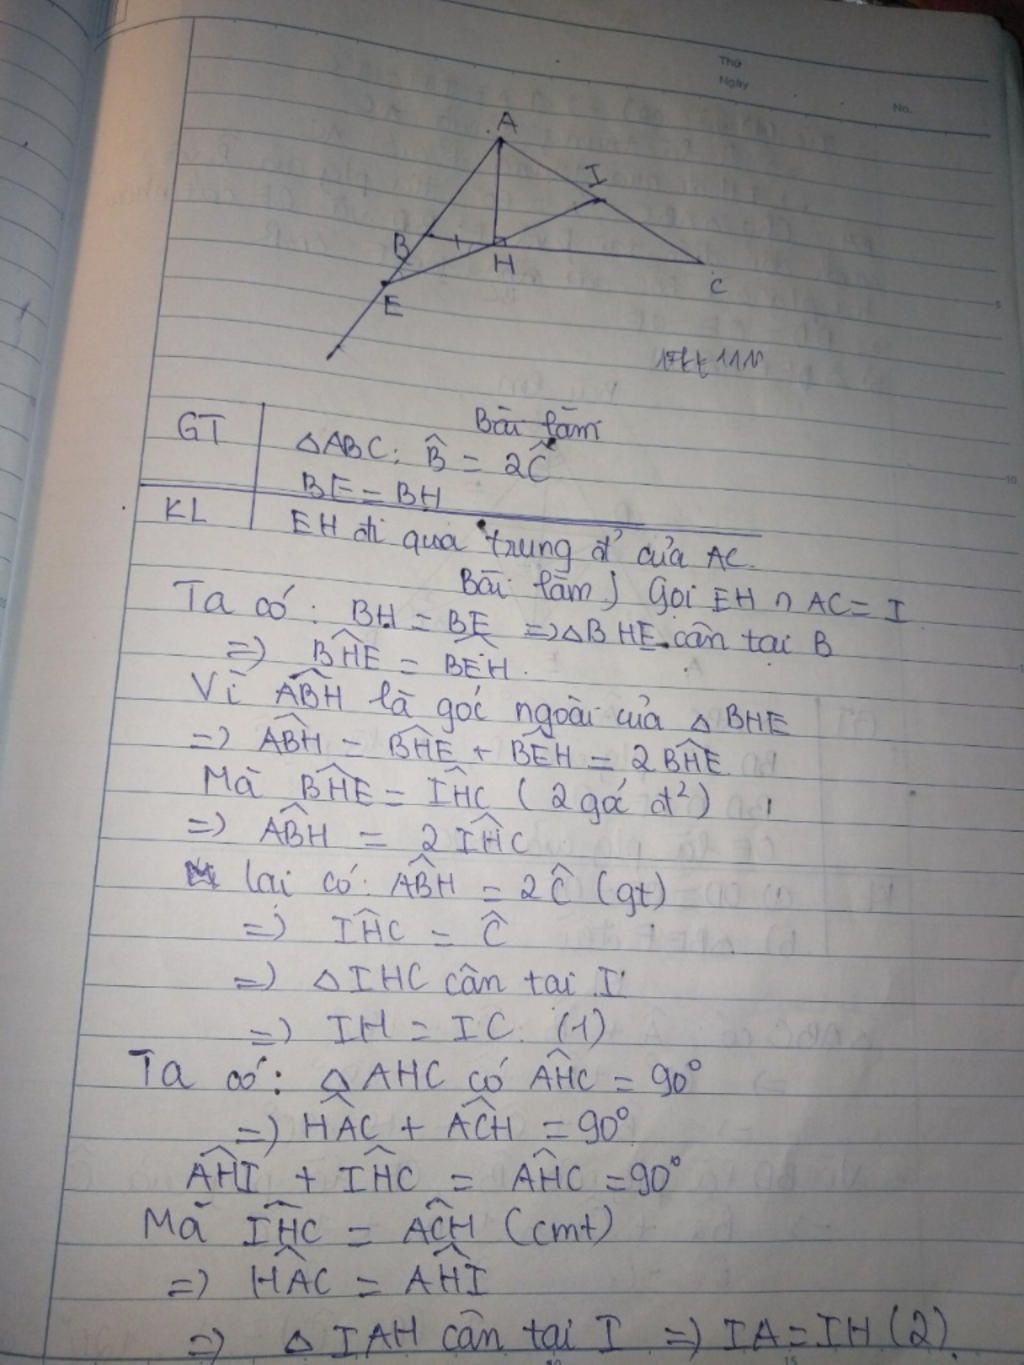 Thứ
Ngày
No.
A
I
B
H
C
E
Bài làm
GT
△ABC: B̂ = 2Ĉ
BE = BH
KL
EH đi qua trung đ² của AC.
Bài làm) Gọi EH ∩ AC = I
Ta có: BH = BE => △BHE cân tại B
=> BĤE = BÊH.
Vì AB̂H là góc ngoài của △BHE
=> AB̂H = BĤE + BÊH = 2BĤE
Mà BĤE = IĤC (2 góc đ²)
=> AB̂H = 2IĤC
lại có: AB̂H = 2Ĉ (gt)
=> IĤC = Ĉ
=> △IHC cân tại I
=> IH = IC. (1)
Ta có: △AHC có AĤC = 90°
=> HÂC + AĈH = 90°
AĤI + IĤC = AĤC = 90°
Mà IĤC = AĈH (cmt)
=> HÂC = AĤI
=> △IAH cân tại I => IA = IH (2)